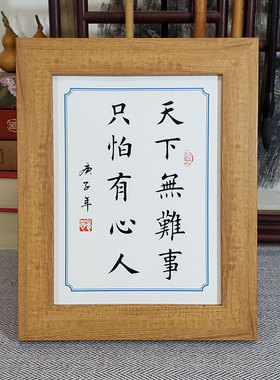 天下無難事
只怕有心人
庚子年